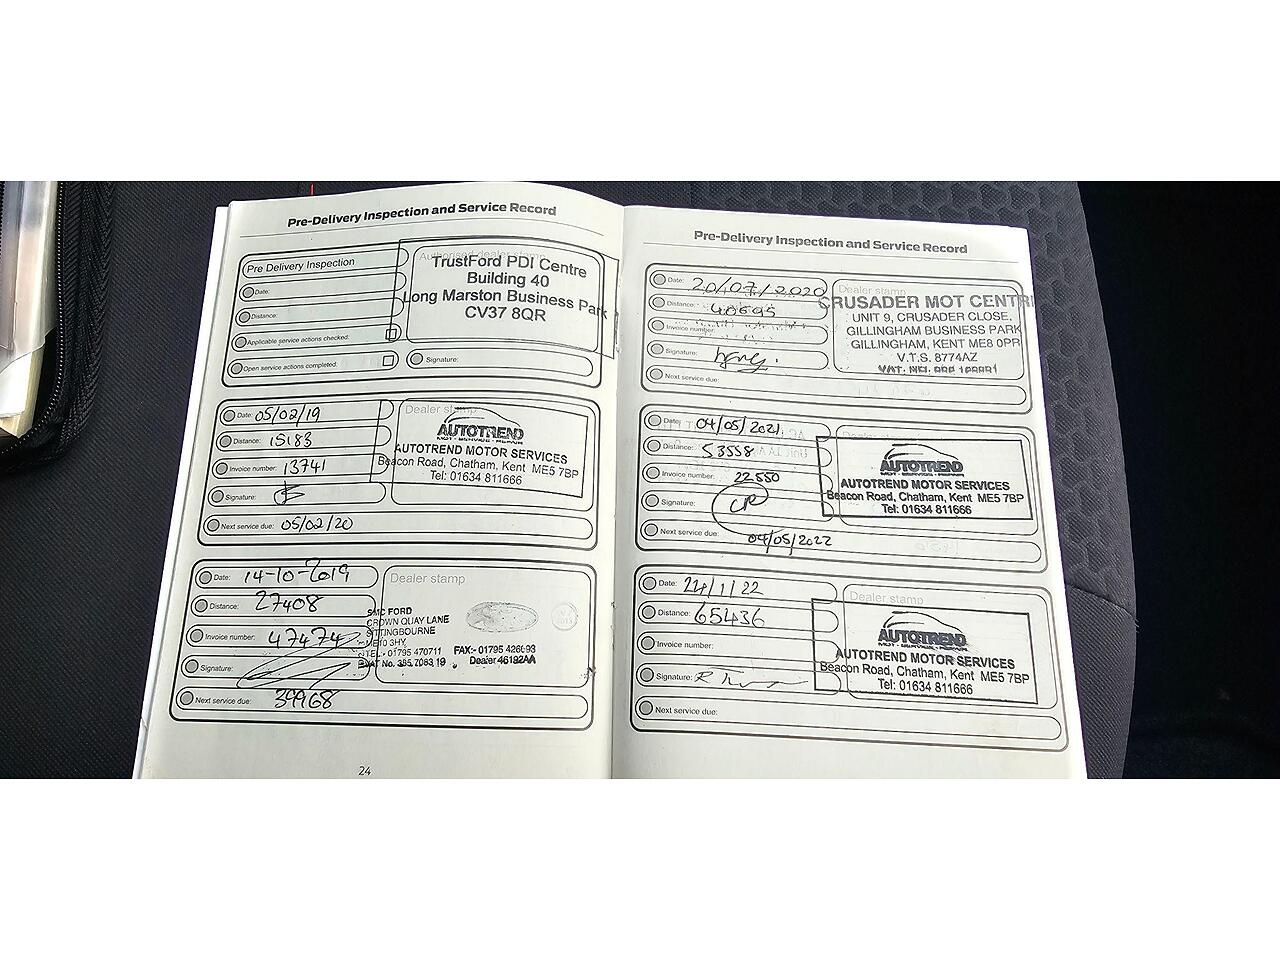 Pre-Delivery Inspection and Service Record
Pre Delivery Inspection
Date:
Distance:
Applicable service actions checked:
Open service actions completed:
Authorised dealer stamp
TrustFord PDI Centre
Building 40
Long Marston Business Park
CV37 8QR
Signature:
Date: 05/02/19
Distance: 15183
Invoice number: 13741
Signature:
Next service due: 05/02/20
Dealer stamp
AUTOTREND
MOT - SERVICE - REPAIR
AUTOTREND MOTOR SERVICES
Beacon Road, Chatham, Kent ME5 7BP
Tel: 01634 811666
Date: 14-10-2019
Distance: 27408
Invoice number: 47474
Signature:
Next service due: 39968
Dealer stamp
SMC FORD
CROWN QUAY LANE
SITTINGBOURNE
ME10 3HY
TEL: 01795 470711 FAX:- 01795 426693
VAT No. 385 7083 19 Dealer 46192AA
24
Pre-Delivery Inspection and Service Record
Date: 20/07/2020
Distance: 40695
Invoice number:
Signature:
Next service due:
Dealer stamp
CRUSADER MOT CENTRE
UNIT 9, CRUSADER CLOSE,
GILLINGHAM BUSINESS PARK
GILLINGHAM, KENT ME8 0PR
V.T.S. 8774AZ
VAT.
Date: 04/05/2021
Distance: 53558
Invoice number: 22550
Signature:
Next service due: 04/05/2022
Dealer stamp
AUTOTREND
MOT - SERVICE - REPAIR
AUTOTREND MOTOR SERVICES
Beacon Road, Chatham, Kent ME5 7BP
Tel: 01634 811666
Date: 24/1/22
Distance: 65436
Invoice number:
Signature:
Next service due:
Dealer stamp
AUTOTREND
MOT - SERVICE - REPAIR
AUTOTREND MOTOR SERVICES
Beacon Road, Chatham, Kent ME5 7BP
Tel: 01634 811666